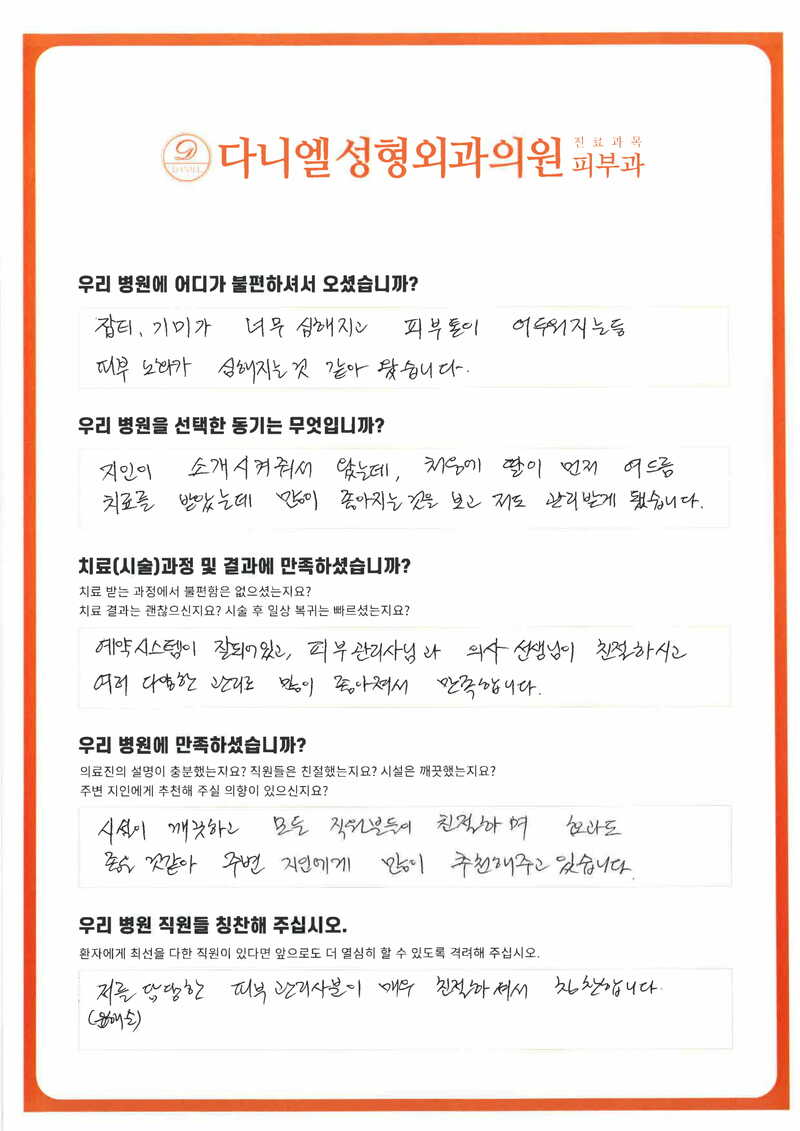 DANIEL
다니엘성형외과의원
진료과목
피부과
우리 병원에 어디가 불편하셔서 오셨습니까?
잡티, 기미가 너무 심해지고 피부톤이 어두워지는등
피부 노화가 심해지는것 같아 왔습니다.
우리 병원을 선택한 동기는 무엇입니까?
지인이 소개시켜줘서 왔는데, 처음에 딸이 먼저 여드름
치료를 받았는데 많이 좋아지는것을 보고 저도 관리받게 됐습니다.
치료(시술)과정 및 결과에 만족하셨습니까?
치료 받는 과정에서 불편함은 없으셨는지요?
치료 결과는 괜찮으신지요? 시술 후 일상 복귀는 빠르셨는지요?
예약시스템이 잘되어있고, 피부관리사님과 의사 선생님이 친절하시고
여러 다양한 관리로 많이 좋아져서 만족합니다.
우리 병원에 만족하셨습니까?
의료진의 설명이 충분했는지요? 직원들은 친절했는지요? 시설은 깨끗했는지요?
주변 지인에게 추천해 주실 의향이 있으신지요?
시설이 깨끗하고 모든 직원분들이 친절하며 효과도
좋은 것같아 주변 지인에게 많이 추천해주고 있습니다.
우리 병원 직원들 칭찬해 주십시오.
환자에게 최선을 다한 직원이 있다면 앞으로도 더 열심히 할 수 있도록 격려해 주십시오.
저를 담당한 피부 관리사분이 매우 친절하셔서 칭찬합니다.